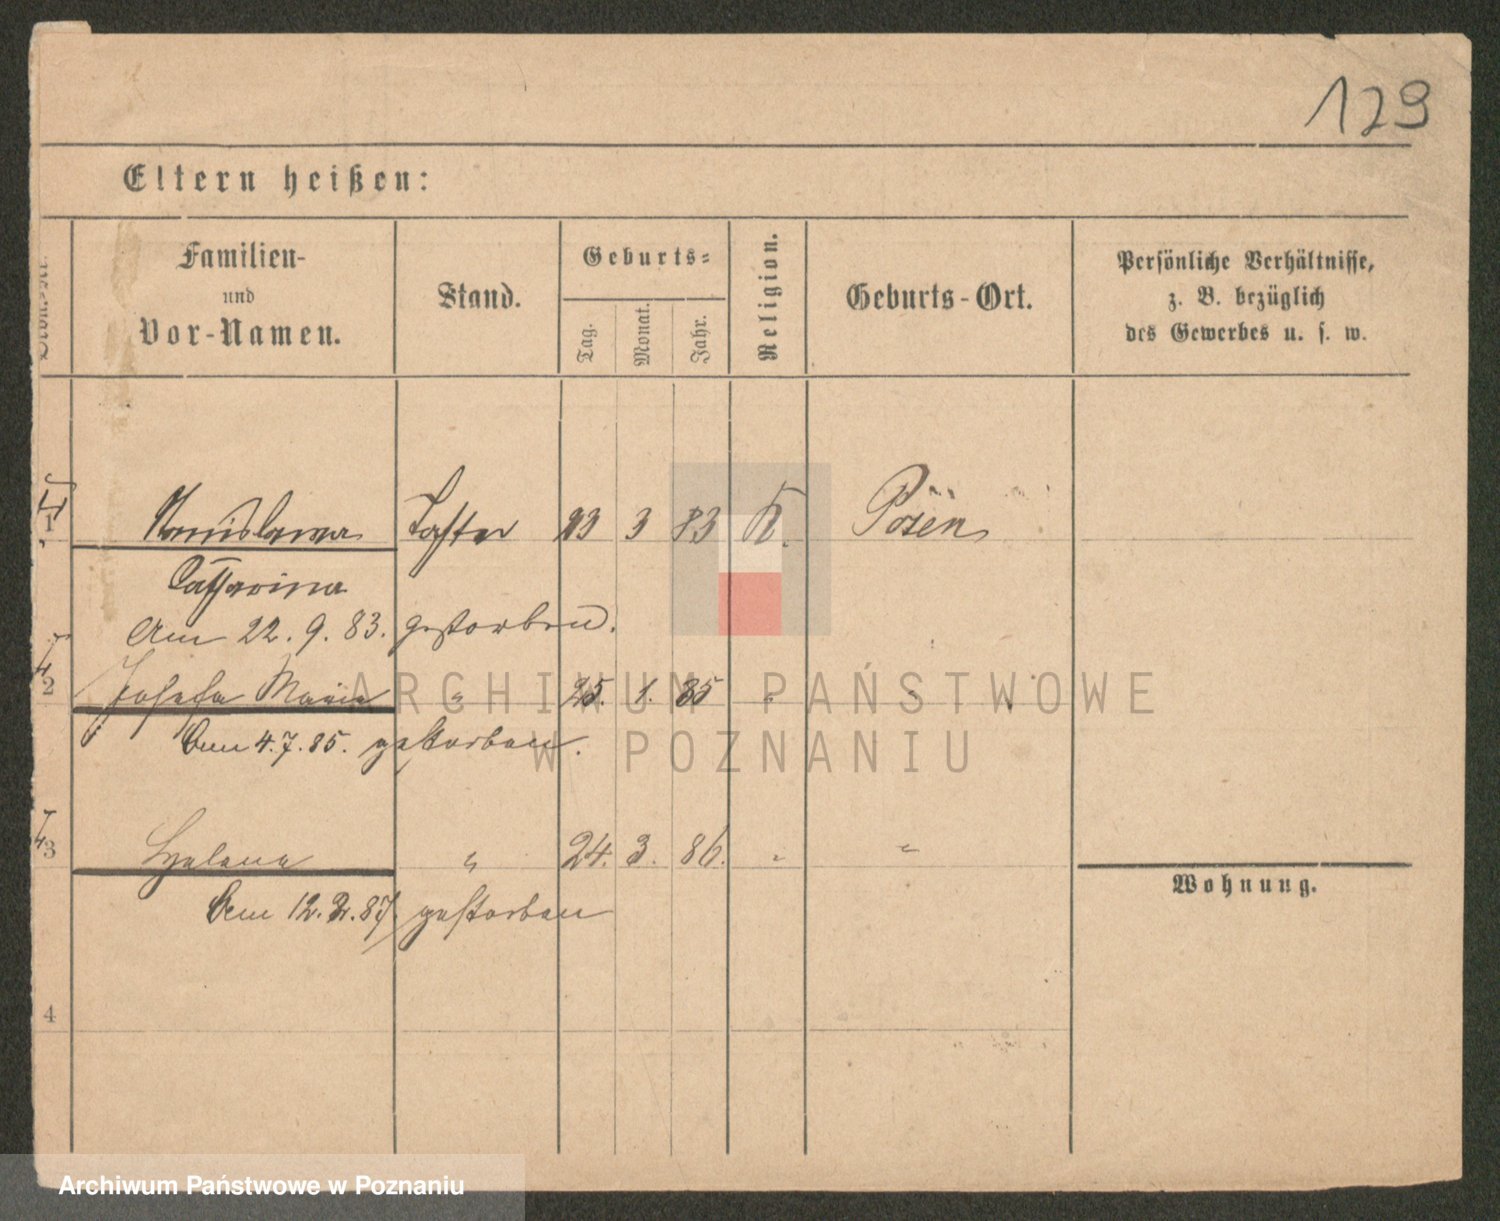 129
Eltern heißen:
Familien-
und
Vor-Namen.
Stand.
Geburts=
Tag.
Monat.
Jahr.
Religion.
Geburts-Ort.
Persönliche Verhältnisse,
z. B. bezüglich
des Gewerbes u. s. w.
1 Stanislawa Tochter 23 3 83 K. Posen
Catharina
Am 22. 9. 83. gestorben.
2 Josefa Maria " 25. 1. 85 " "
Am 4. 7. 85. gestorben.
3 Helena " 24. 3. 86. " "
Wohnung.
Am 12. 2. 87. gestorben
4
ARCHIWUM PAŃSTWOWE
W POZNANIU
Archiwum Państwowe w Poznaniu